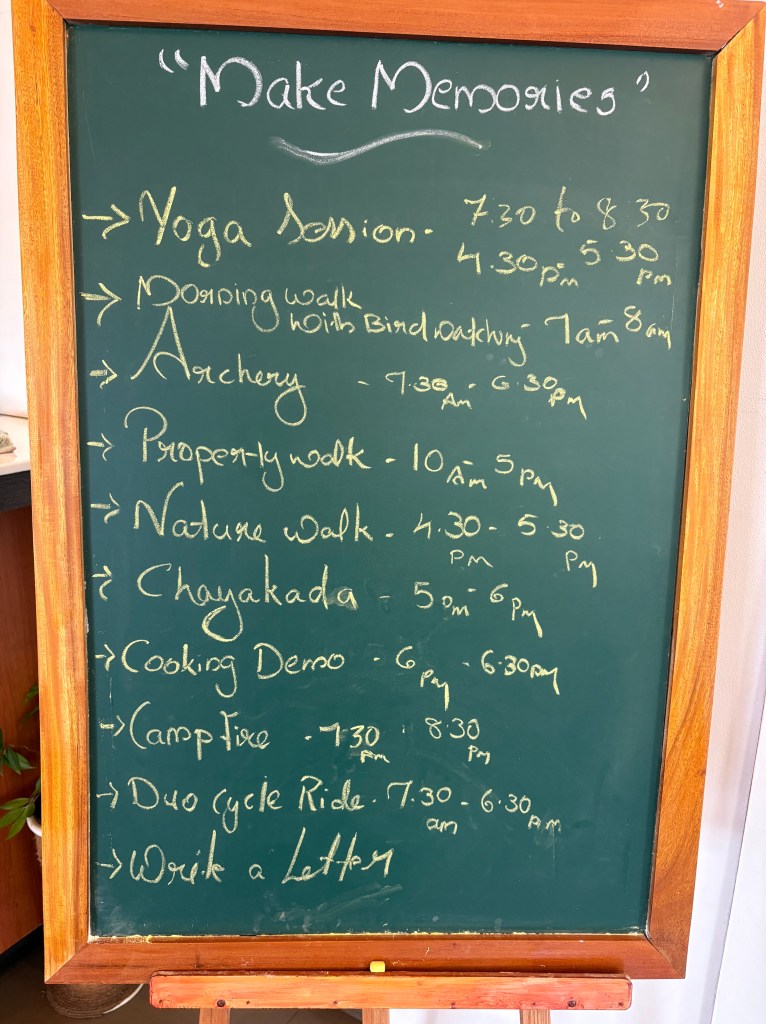 "Make Memories"
→ Yoga Session - 7.30 to 8.30
4.30pm - 5.30pm
→ Morning walk
with Bird watching - 7am - 8am
→ Archery - 7.30 Am - 6.30 PM
→ Property walk - 10 AM - 5 PM
→ Nature walk - 4.30 PM - 5.30 PM
→ Chayakada - 5pm - 6pm
→ Cooking Demo - 6 PM - 6.30pm
→ Campfire - 7.30 pm - 8.30 PM
→ Duo Cycle Ride - 7.30 am - 6.30 PM
→ Write a Letter